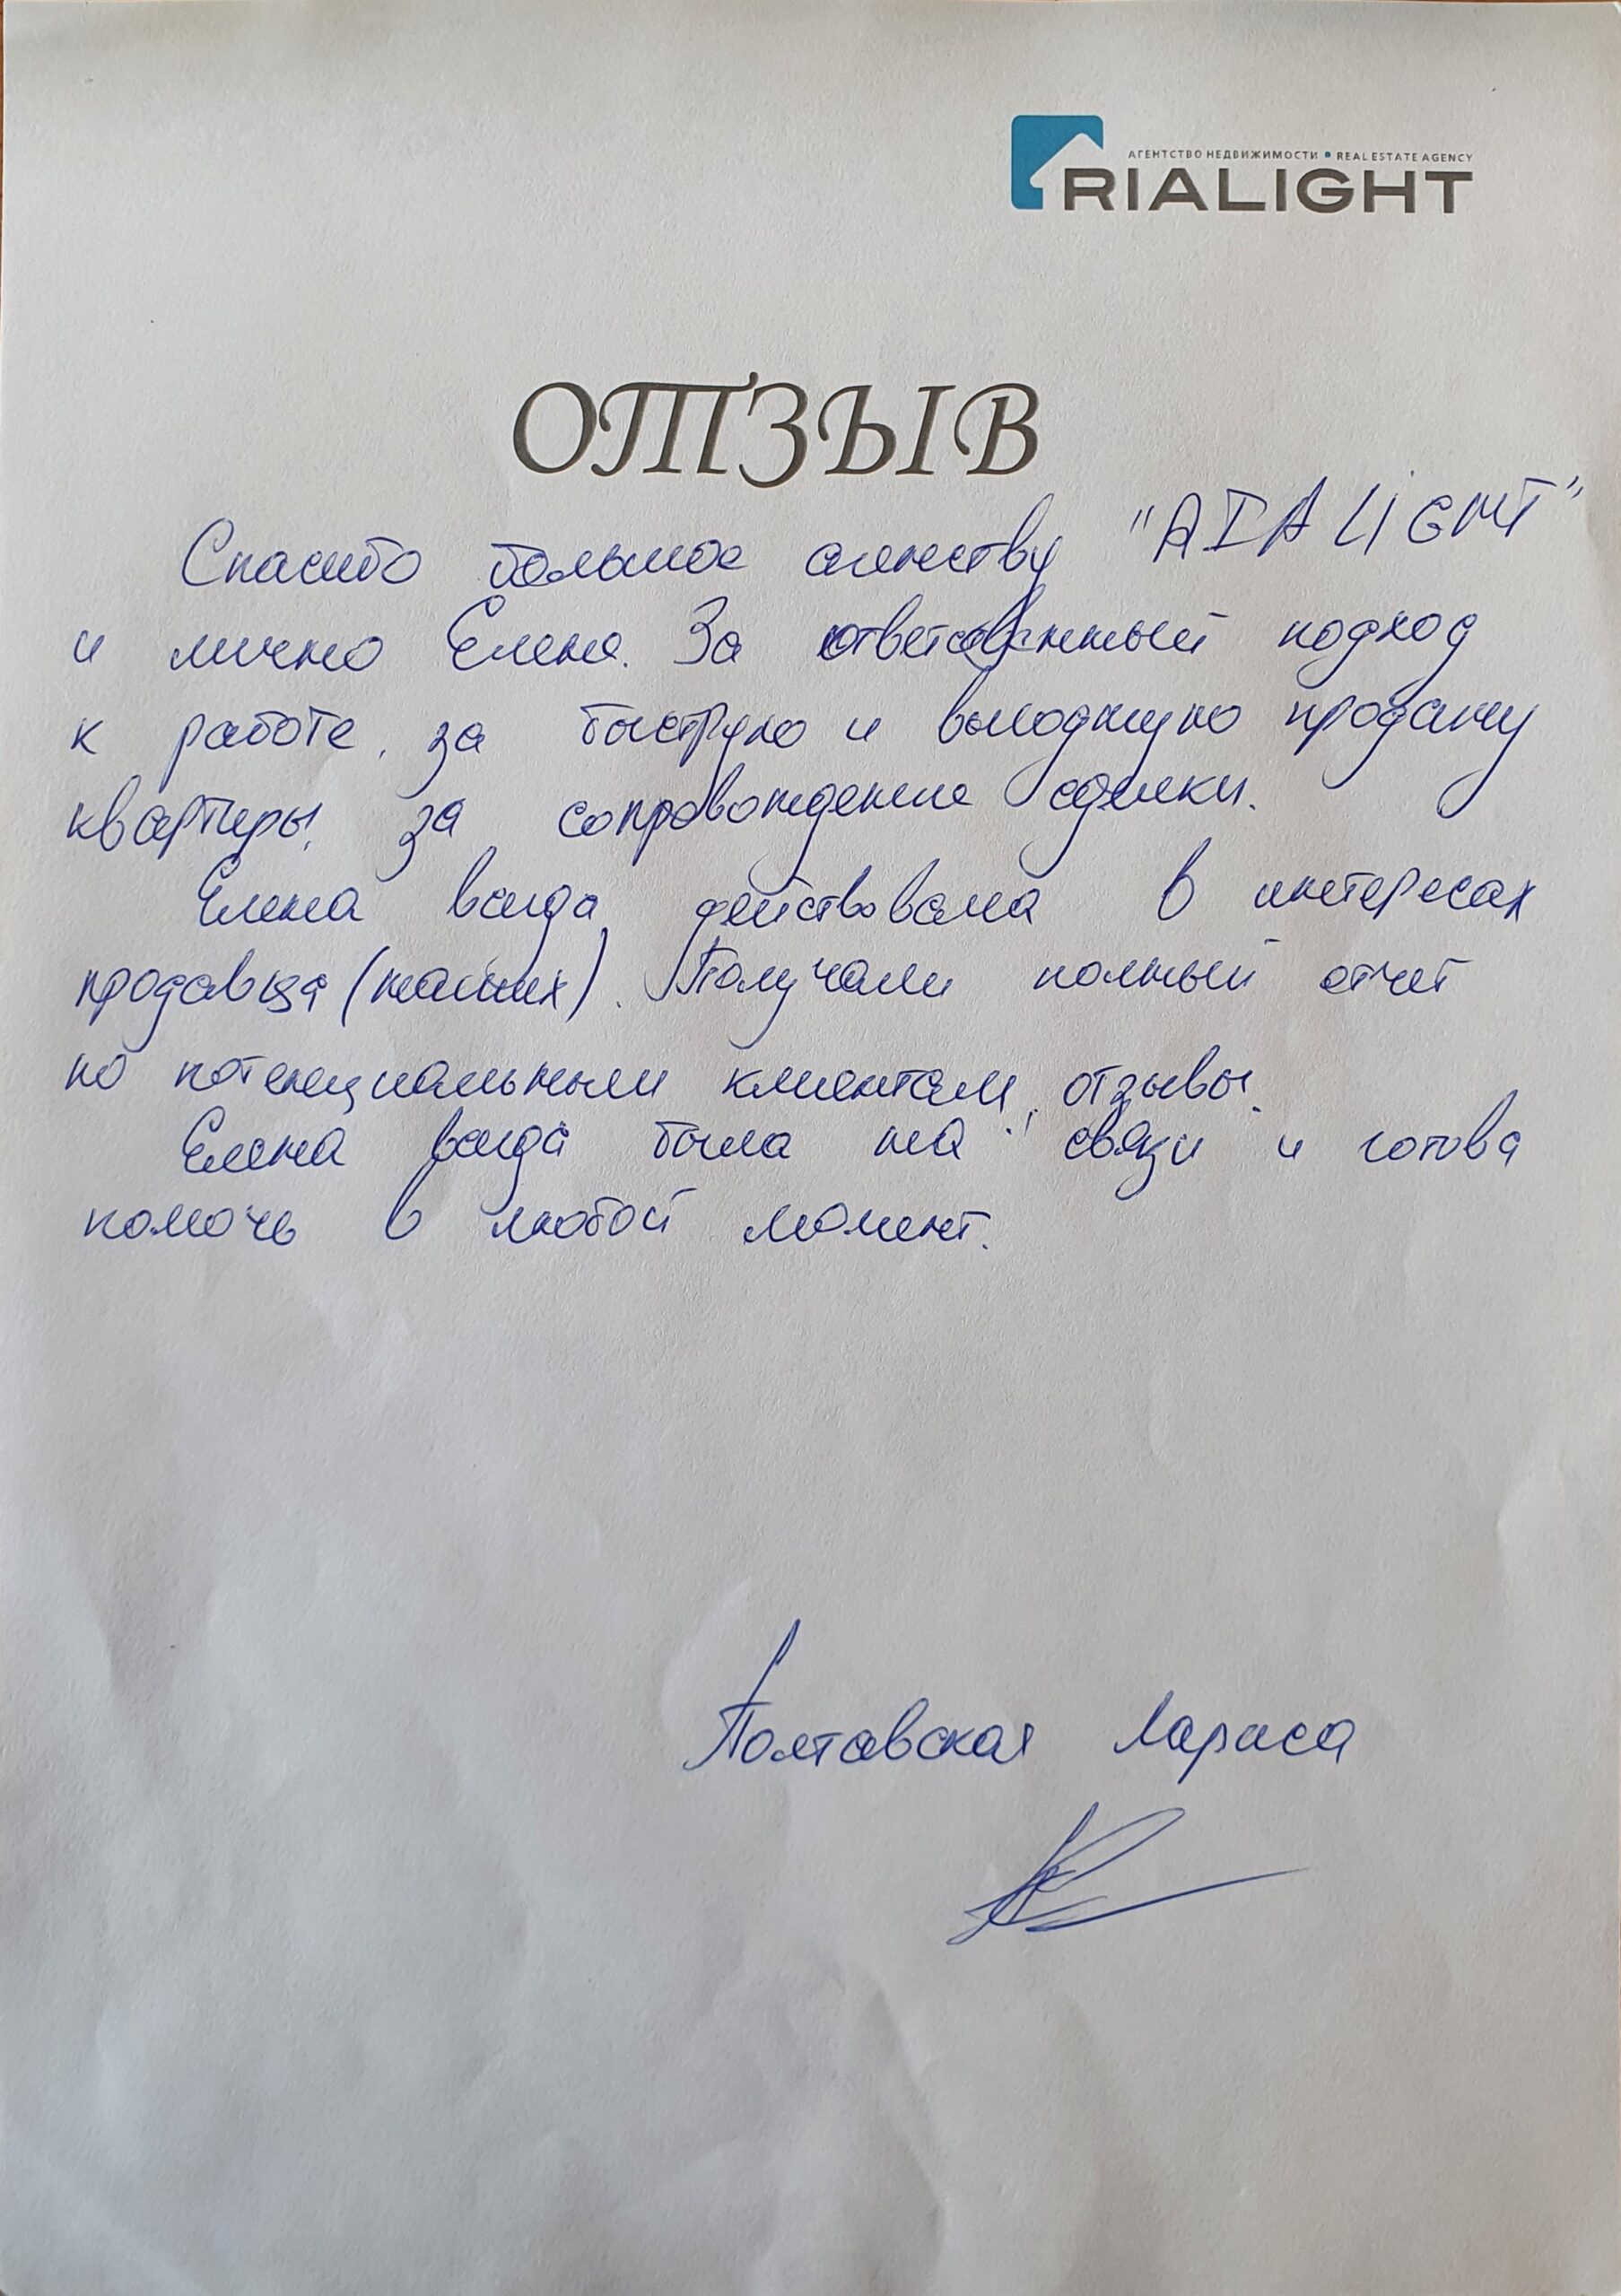 АГЕНТСТВО НЕДВИЖИМОСТИ • REAL ESTATE AGENCY
RIALIGHT
ОТЗЫВ
Спасибо большое агенству "RIALIGHT"
и лично Елене. За ответственный подход
к работе, за быструю и выгодную продажу
квартиры, за сопровождение сделки.
Елена всегда действовала в интересах
продавца (наших). Получали полный отчет
по потенциальным клиентам, отзывы.
Елена всегда была на связи и готова
помочь в любой момент.
Полтавская Лариса